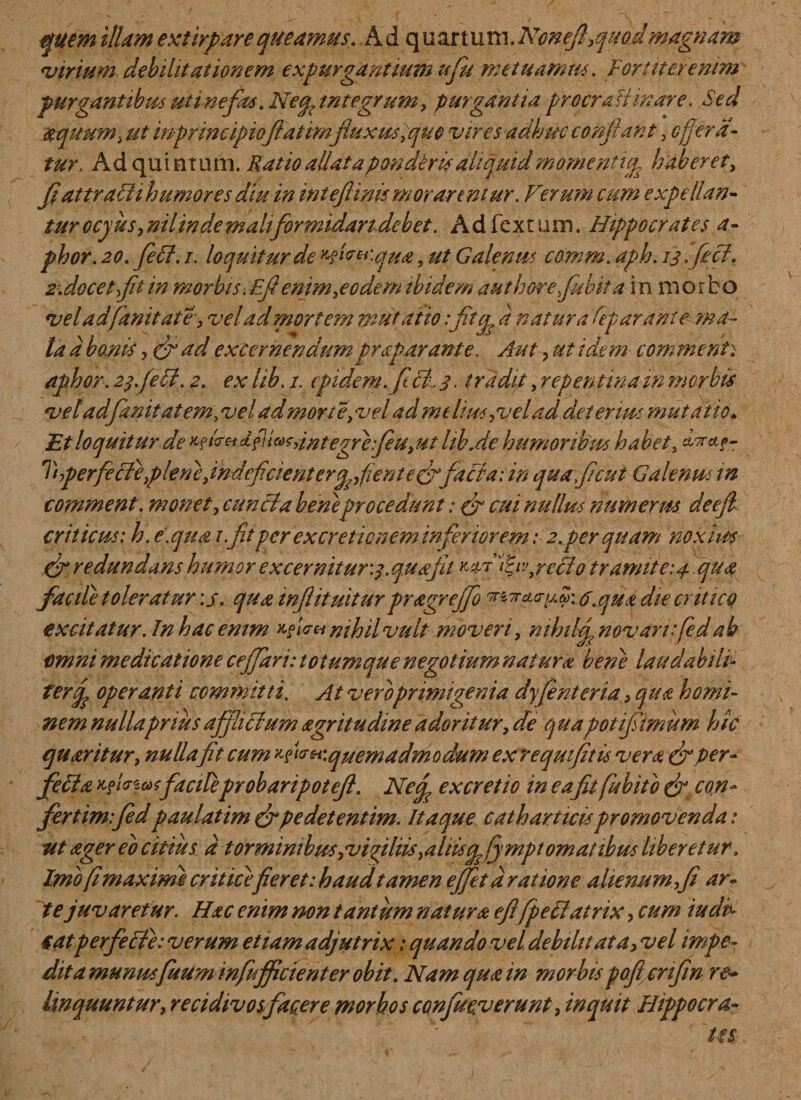 quem illam extirpare queamus. Ad quartum. Non est, quod magnam
virium debilitationem expurgantium usu metuamus. Fortiter enim
purgantibus uti nefas. Neq; integrum, purgantia procrastinare. Sed
æquum, ut in principio statim fluxus, quo vires adhuc constant, offera-
tur. Ad quintum. Ratio allata ponderis aliquid momentiq; haberet,
si attracti humores diu in intestinis morarentur. Verum cum expellan-
tur ocyùs, nil inde mali formidari debet. Ad sextum. Hippocrates a-
phor. 20. sect. 1. loquitur de κρίσει: qua, ut Galenus comm. aph. 13. sect.
2. docet, fit in morbis. Est enim, eodem ibidem authore, subita in morbo
vel ad sanitatē, vel ad mortem mutatio: fitq; à natura separante ma-
la à bonis, & ad excernendum præparante. Aut, ut idem comment:
aphor. 23. sect. 2. ex lib. 1. epidem. sect. 3. tradit, repentina in morbis
vel ad sanitatem, vel ad mortē, vel ad melius, vel ad deterius mutatio.
Et loquitur de κρίσει ἀρτίως, integrè: seu, ut lib. de humoribus habet,
perfectè, plenè, indeficienterq;, fiente & facta: in qua, sicut Galenus in
comment. monet, cuncta benè procedunt: & cui nullus numerus deest
criticus: h. e. qua 1. fit per excretionem inferiorem: 2. per quam noxius
& redundans humor excernitur: 3. quæ fit κατ' ἴξιν, recto tramite: 4. quæ
facilè toleratur: 5. quæ instituitur prægresso πεπασμῷ: 6. quæ die critico
excitatur. In hac enim κρίσει nihil vult moveri, nihilq; novari: sed ab
omni medicatione cessari: totumque negotium naturæ benè laudabili-
terq; operanti committi. At verò primigenia dysenteria, quæ homi-
nem nulla priùs afflictum ægritudine adoritur, de qua potissimùm hîc
quæritur, nulla fit cum κρίσει: quemadmodum ex requisitis veræ & per-
fectæ κρίσεως facilè probari potest. Neq; excretio in ea fit subitò & con-
fertim: sed paulatim & pedetentim. Itaque catharticis promovenda:
ut æger eò citiùs à torminibus, vigiliis, aliisq; symptomatibus liberetur.
Imò si maximè criticè fieret: haud tamen esset à ratione alienum, si ar-
te juvaretur. Hæc enim non tantùm naturæ est spectatrix, cum iudi-
cat perfectè: verùm etiam adjutrix: quando vel debilitata, vel impe-
dita munus suum insufficienter obit. Nam quæ in morbis post crisin re-
linquuntur, recidivos facere morbos consueverunt, inquit Hippocra-
tes